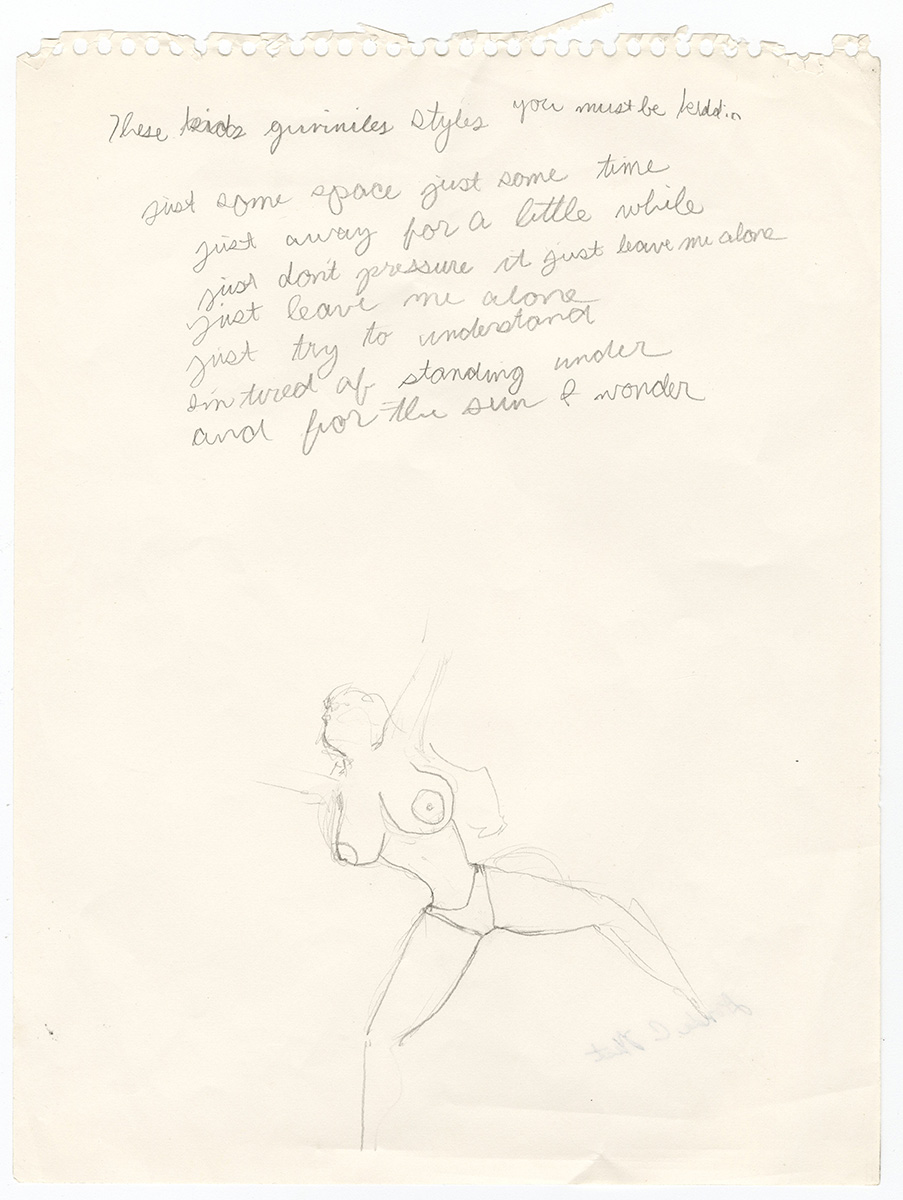 These kids guviniles styles you must be kiddin
just some space just some time
just away for a little while
just don't pressure it just leave me alone
just leave me alone
just try to understand
I'm tired of standing under
and for the sun I wonder